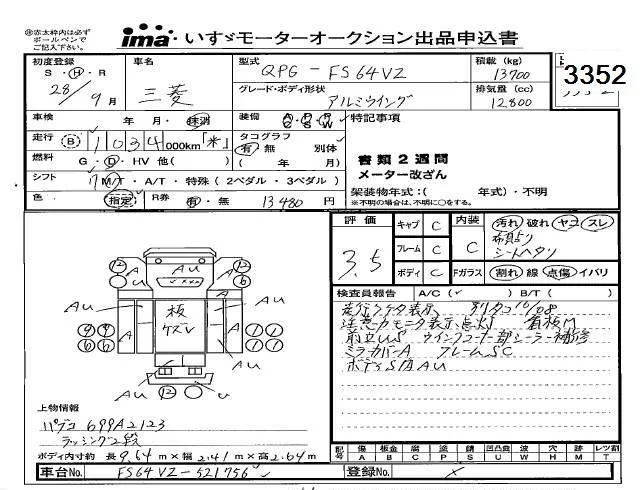 ㊟赤太枠内は必ず
ボールペンで
ご記入下さい。
ima いすゞモーターオークション出品申込書
初度登録 車名 型式 積載(kg)
S・H・R 三菱 QPG-FS64VZ 13700
28/9月 グレード・ボディ形状 排気量(cc)
アルミウイング 12800
3352
車検 年・月・抹消 装備 特記事項
走行 B 1034000km 「*」 タコグラフ
有 無 別体
燃料 G・D・HV 他( ) ( 年 月)
書類2週間
メーター改ざん
シフト 7 M/T・A/T・特殊(2ペダル・3ペダル)
架装物年式:( 年式)・不明
※不明の場合は、不明に○をする。
色 指定 R券 有・無 13480円
評価 3.5
キャブ C 内装 C 汚れ 破れ ヤコ スレ
フレーム C シートヘタリ
ボディ C Fガラス 割れ 線 点傷 イバリ
検査員報告 A/C(✓) B/T( )
走行クチタ表示、別タコ16/08
注意カモーク表示点灯 看板M
前立US ウインクコーナー部シーラー補修
ミラーカバーA フレームSC
ボディS/A AU
AU
板
ケズレ
上物情報
パブコ 699A2123
ラッシング2段
ボディ内寸約 長9.64m×幅2.41m×高2.64m
記号 傷 板金 腐 穴 錆 凹凸曲 波 穴 外 補 レツ割
A B C P S U W H X M T
車台No. FS64VZ-521756 登録No.